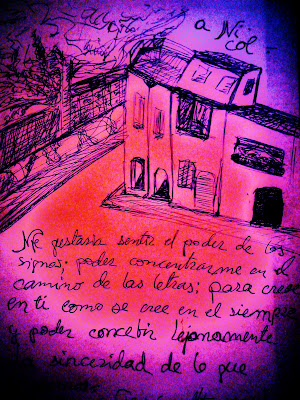 a Nicol
Me gustaria sentir el poder de los
signos; poder concentrarme en el
camino de las letras; para creer
en ti como se cree en el siempre
y poder concebir lejanamente
la sinceridad de lo que